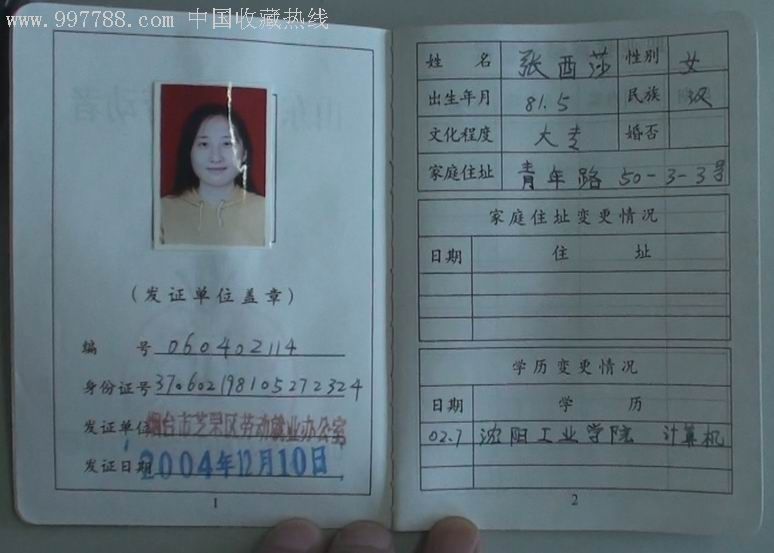 www.997788.com 中国收藏热线
(发证单位盖章)
编 号 060402114
身份证号 370602198105272324
发证单位 烟台市芝罘区劳动就业办公室
发证日期 2004年12月10日
1
姓 名 张西莎 性别 女
出生年月 81.5 民族 汉
文化程度 大专 婚否
家庭住址 青年路 50-3-3号
家庭住址变更情况
日期 住 址
学历变更情况
日期 学 历
02.7 沈阳工业学院 计算机
2